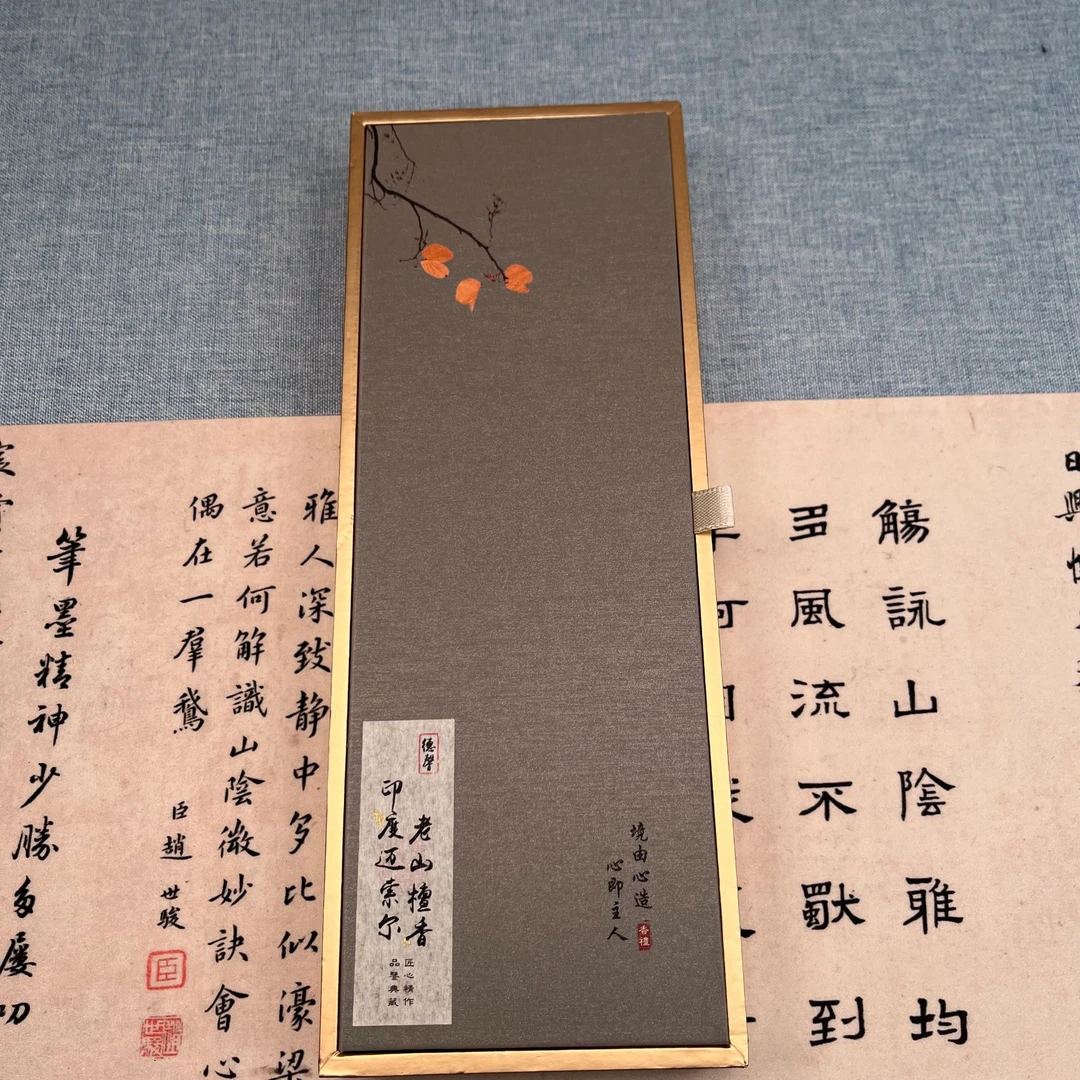 德馨
老山檀香
印度迈索尔
匠心精作
品鉴典藏
境由心造
心即主人
香檀
觴詠山陰雅均
多風流不猒到
雅人深致静中多比似濠梁
意若何解識山陰微妙訣會心
偶在一羣鵝
臣趙世駿
臣
筆墨精神少勝多屢